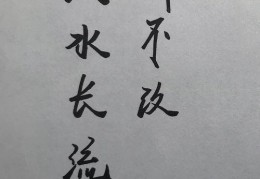 不改
水长流